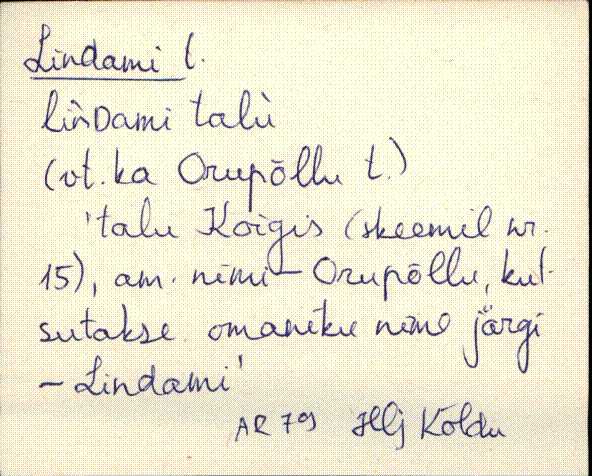 Lindami t.
linDami talù
(vt. ka Orupõllu t.)
'talu Koigis (skeemil nr.
15), am. nimi - Orupõllu, kut-
sutakse omaniku nime järgi
- Lindami'
AR 79 Hlj Kõldu